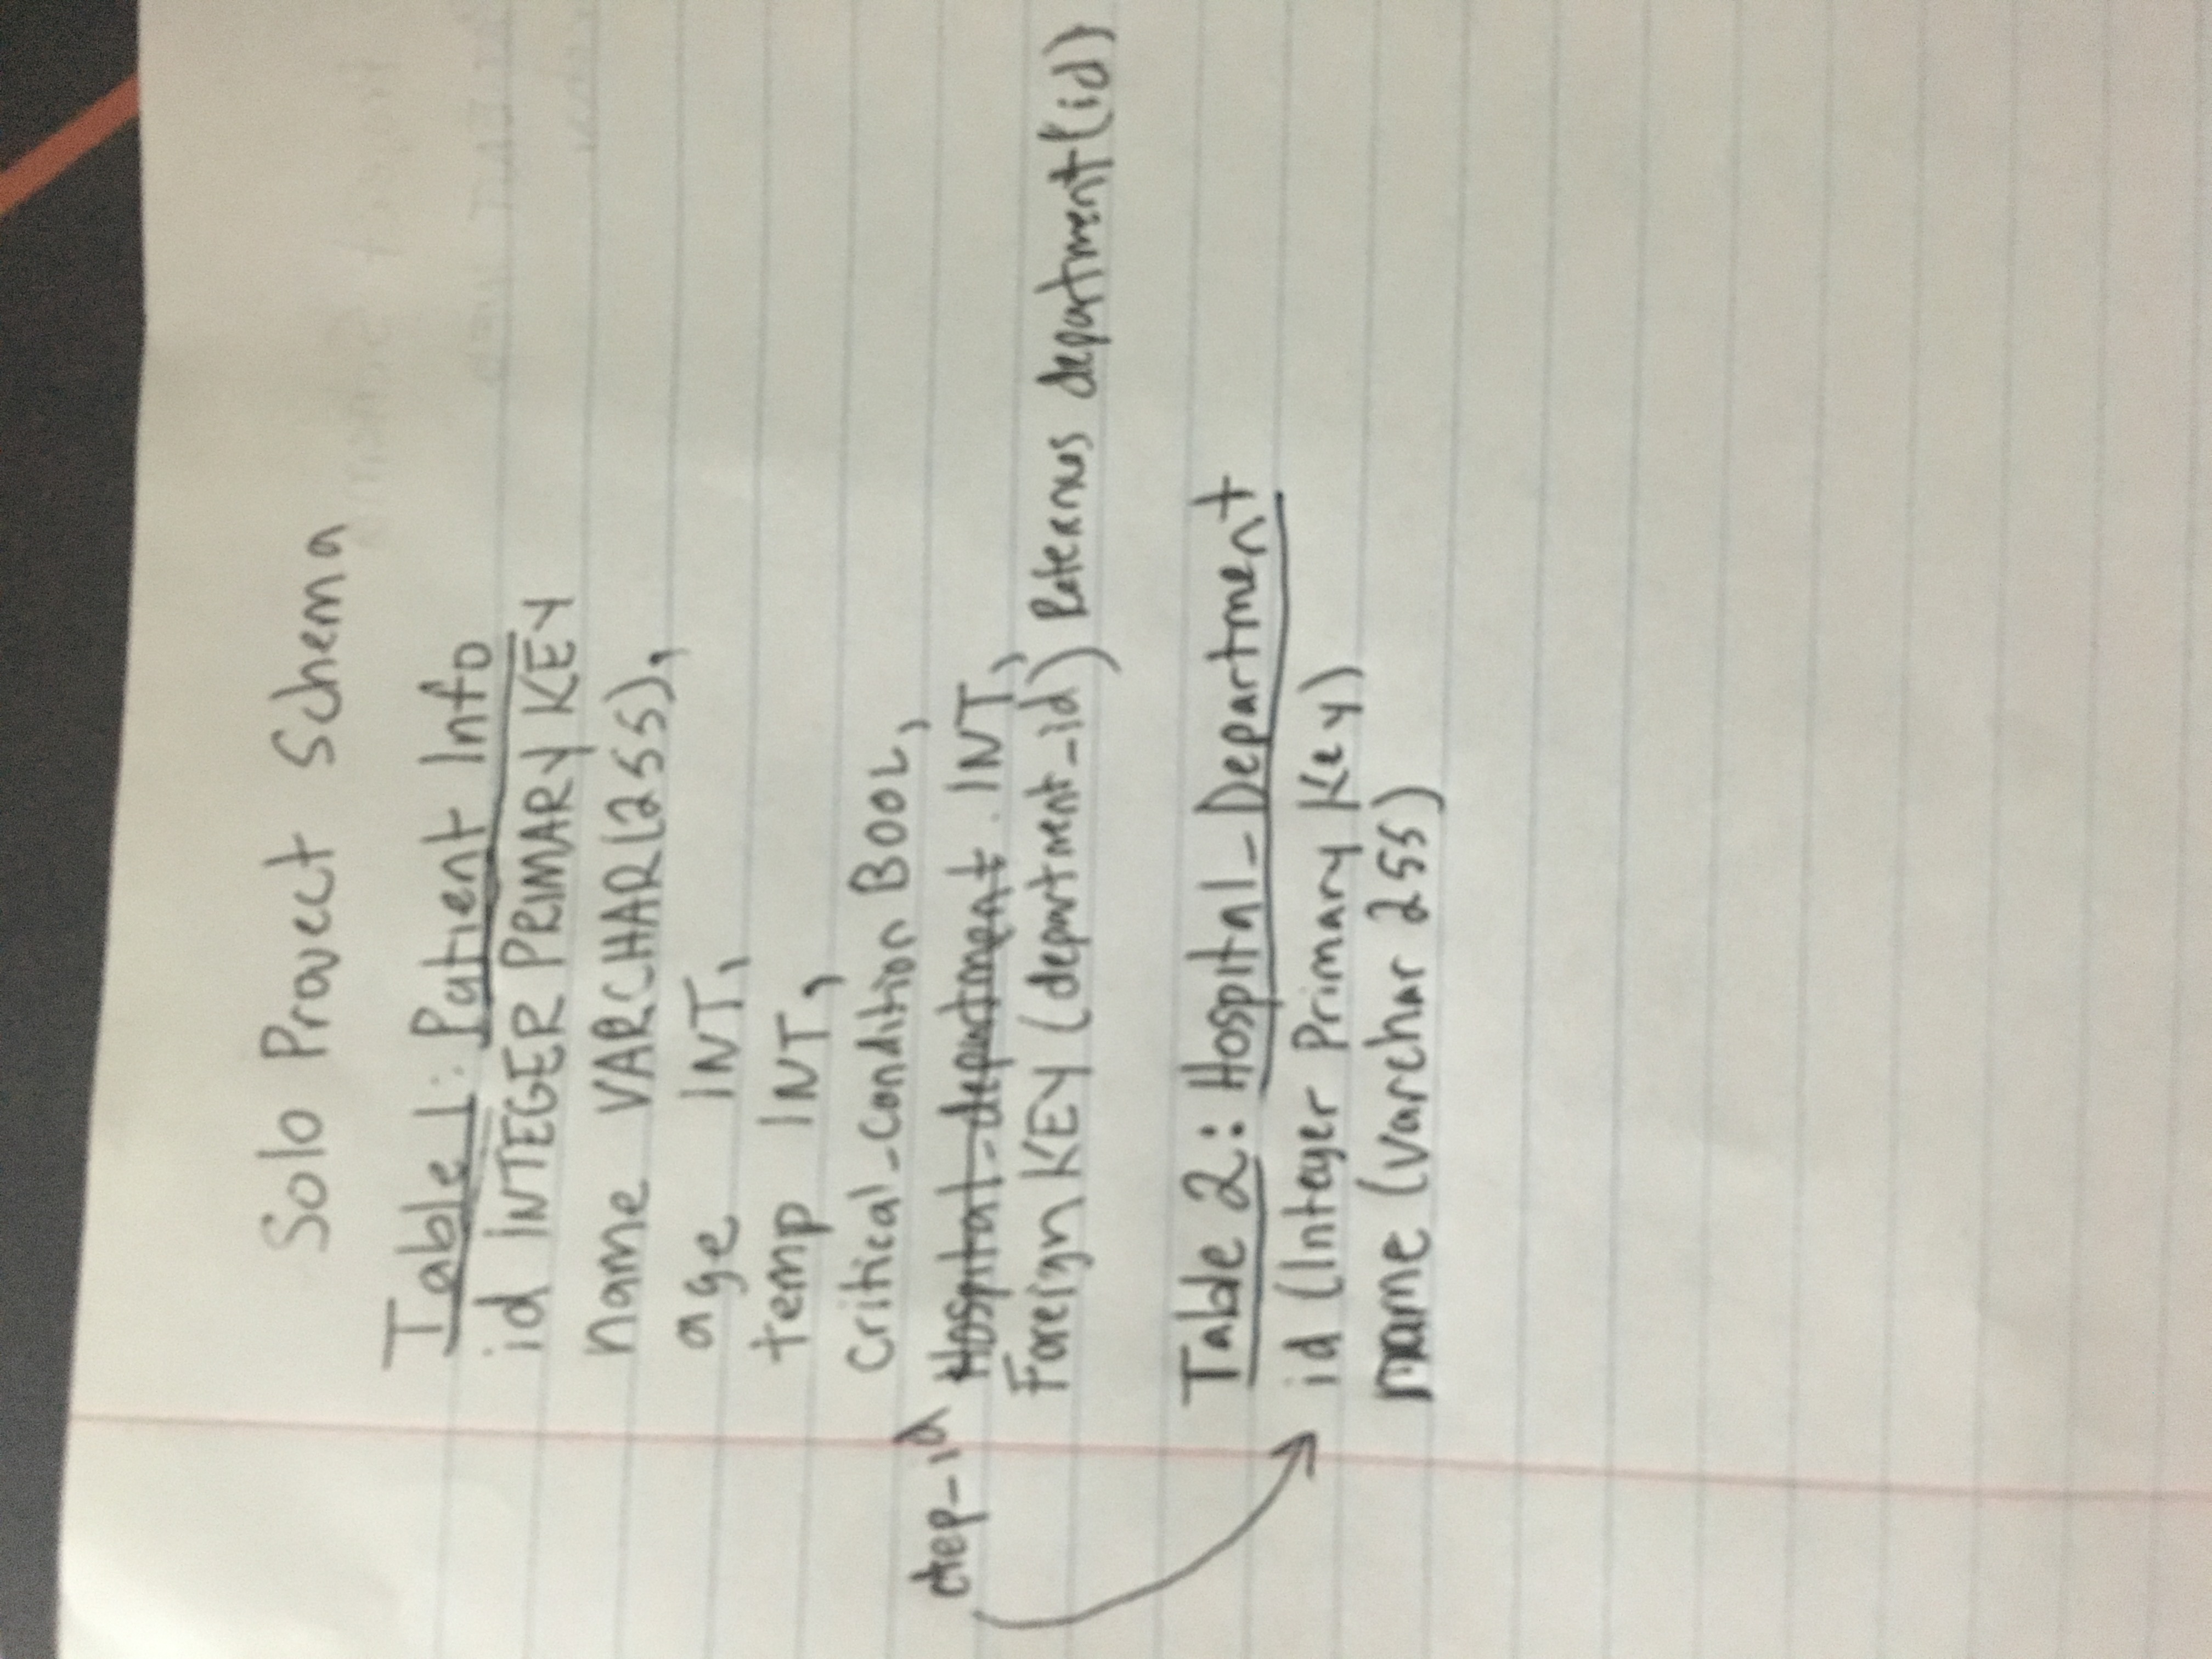 Solo Project Schema
Table 1: Patient Info
id INTEGER PRIMARY KEY
name VARCHAR(255),
age INT,
temp INT,
Critical_Condition BOOL,
dep_id Hospital_department INT,
Foreign KEY (department_id) References department(id)
Table 2: Hospital_Department
id (Integer Primary Key)
name (varchar 255)